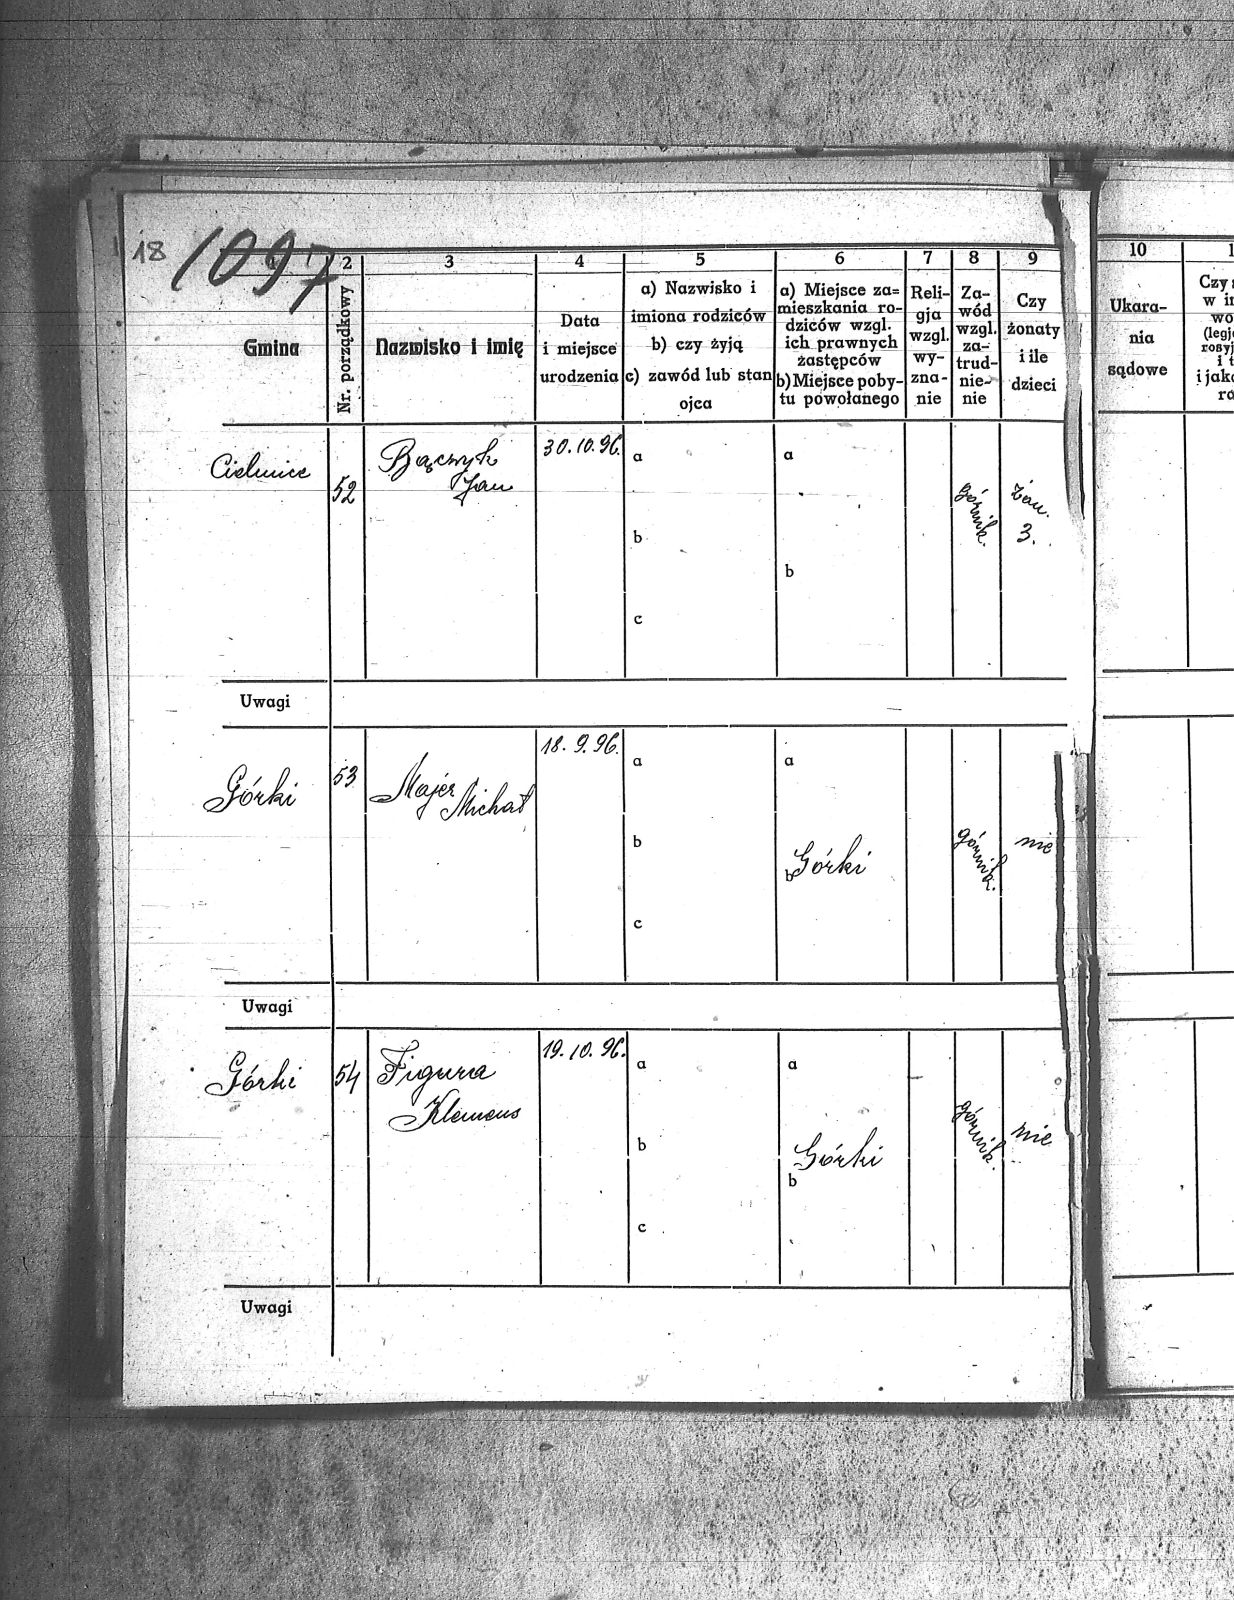 18 1097
2 3 4 5 6 7 8 9 10
Gmina
Nr. porządkowy
Nazwisko i imię
Data
i miejsce
urodzenia
a) Nazwisko i
imiona rodziców
b) czy żyją
c) zawód lub stan
ojca
a) Miejsce za=
mieszkania ro-
dziców wzgl.
ich prawnych
zastępców
b) Miejsce poby-
tu powołanego
Reli-
gja
wzgl.
wy-
zna-
nie
Za-
wód
wzgl.
za-
trud-
nie-
nie
Czy
żonaty
i ile
dzieci
Ukara-
nia
sądowe
Czy
w
(legj
rosyj
i jak
Cielmice
52
Bączyk
Jan
30.10.96.
a
b
c
a
b
górnik.
żon.
3.
Uwagi
Górki
53
Majer
Michał
18.9.96.
a
b
c
a
b Górki
górnik.
nie
Uwagi
Górki
54
Figura
Klemens
19.10.96.
a
b
c
a
Górki
b
górnik.
nie
Uwagi